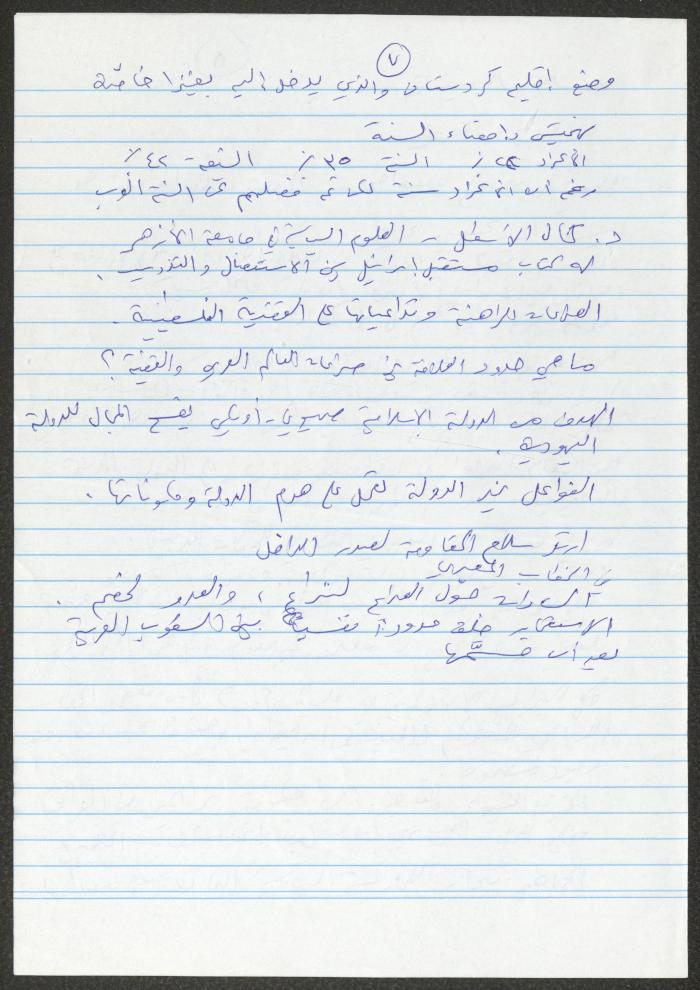 ٧
وضع إقليم كردستان والذي يدخل إليه بفيزا خاصة
تهميش واقصاء السنة
الأكراد ٪ السنة ٣٥٪ الشيعة ٤٢٪
رغم أن الأكراد سنة لكن تم فصلهم عن السنة العرب
د. جمال الأسطل - العلوم السياسية في جامعة الأزهر
له كتاب مستقبل إسرائيل بين الاستئصال والتذويب.
الصراعات الراهنة وتداعياتها على القضية الفلسطينية.
ما هي حدود العلاقة بين صراعات العالم العربي والقضية؟
الهدف من الدولة الإسلامية صهيوني - أمريكي يفسح المجال للدولة
اليهودية.
الفواعل غير الدولة تعمل على هدم الدولة ومكوناتها.
ارتد سلاح المقاومة لصدر الداخل
في الخطاب المصري
السادات حول الصراع لنزاع، والعدو لخصم.
الاستعمار خلق حدودا نفسية بين الشعوب العربية
بعد أن قسَّمها